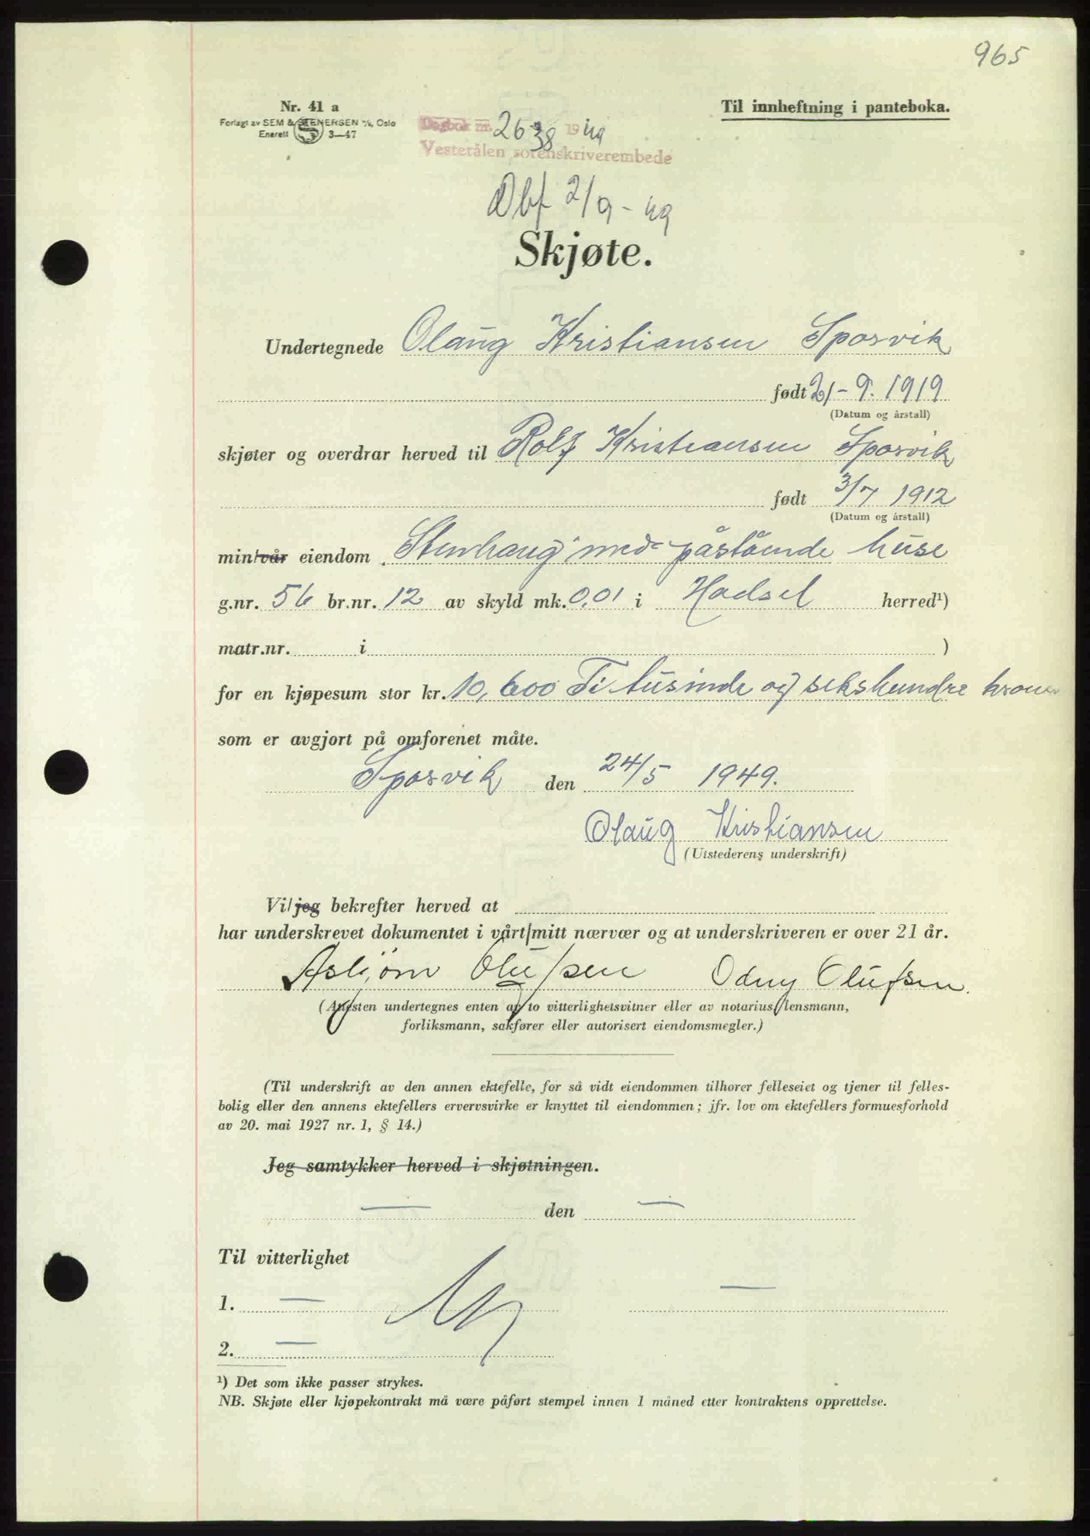 965
Nr. 41 a
Forlagt av SEM & STENERSEN A/S, Oslo
Enerett S 3—47
Til innheftning i panteboka.
Dagbok nr. 2638 1949
Vesterålen sorenskriverembede
Dbf 2/9 - 49
Skjøte.
Undertegnede Olaug Kristiansen Sposvik
født 21-9. 1919
(Datum og årstall)
skjøter og overdrar herved til Rolf Kristiansen Sposvik
født 3/7 1912
(Datum og årstall)
min/vår eiendom „Stenhaug" med påstående huse
g.nr. 56 br.nr. 12 av skyld mk. 0,01 i Hadsel herred¹)
matr.nr. i )
for en kjøpesum stor kr. 10,600 Ti tusinde og sekshundre kroner
som er avgjort på omforenet måte.
Sposvik den 24/5 1949.
Olaug Kristiansen
(Utstederens underskrift)
Vi/jeg bekrefter herved at
har underskrevet dokumentet i vårt/mitt nærvær og at underskriveren er over 21 år.
Asbjørn Olufsen Odny Olufsen.
(Attesten undertegnes enten av to vitterlighetsvitner eller av notarius, lensmann,
forliksmann, sakfører eller autorisert eiendomsmegler.)
(Til underskrift av den annen ektefelle, for så vidt eiendommen tilhører felleseiet og tjener til felles-
bolig eller den annens ektefellers ervervsvirke er knyttet til eiendommen; jfr. lov om ektefellers formuesforhold
av 20. mai 1927 nr. 1, § 14.)
Jeg samtykker herved i skjøtningen.
— den —
Til vitterlighet
1. — —
2. —
¹) Det som ikke passer strykes.
NB. Skjøte eller kjøpekontrakt må være påført stempel innen 1 måned etter kontraktens opprettelse.